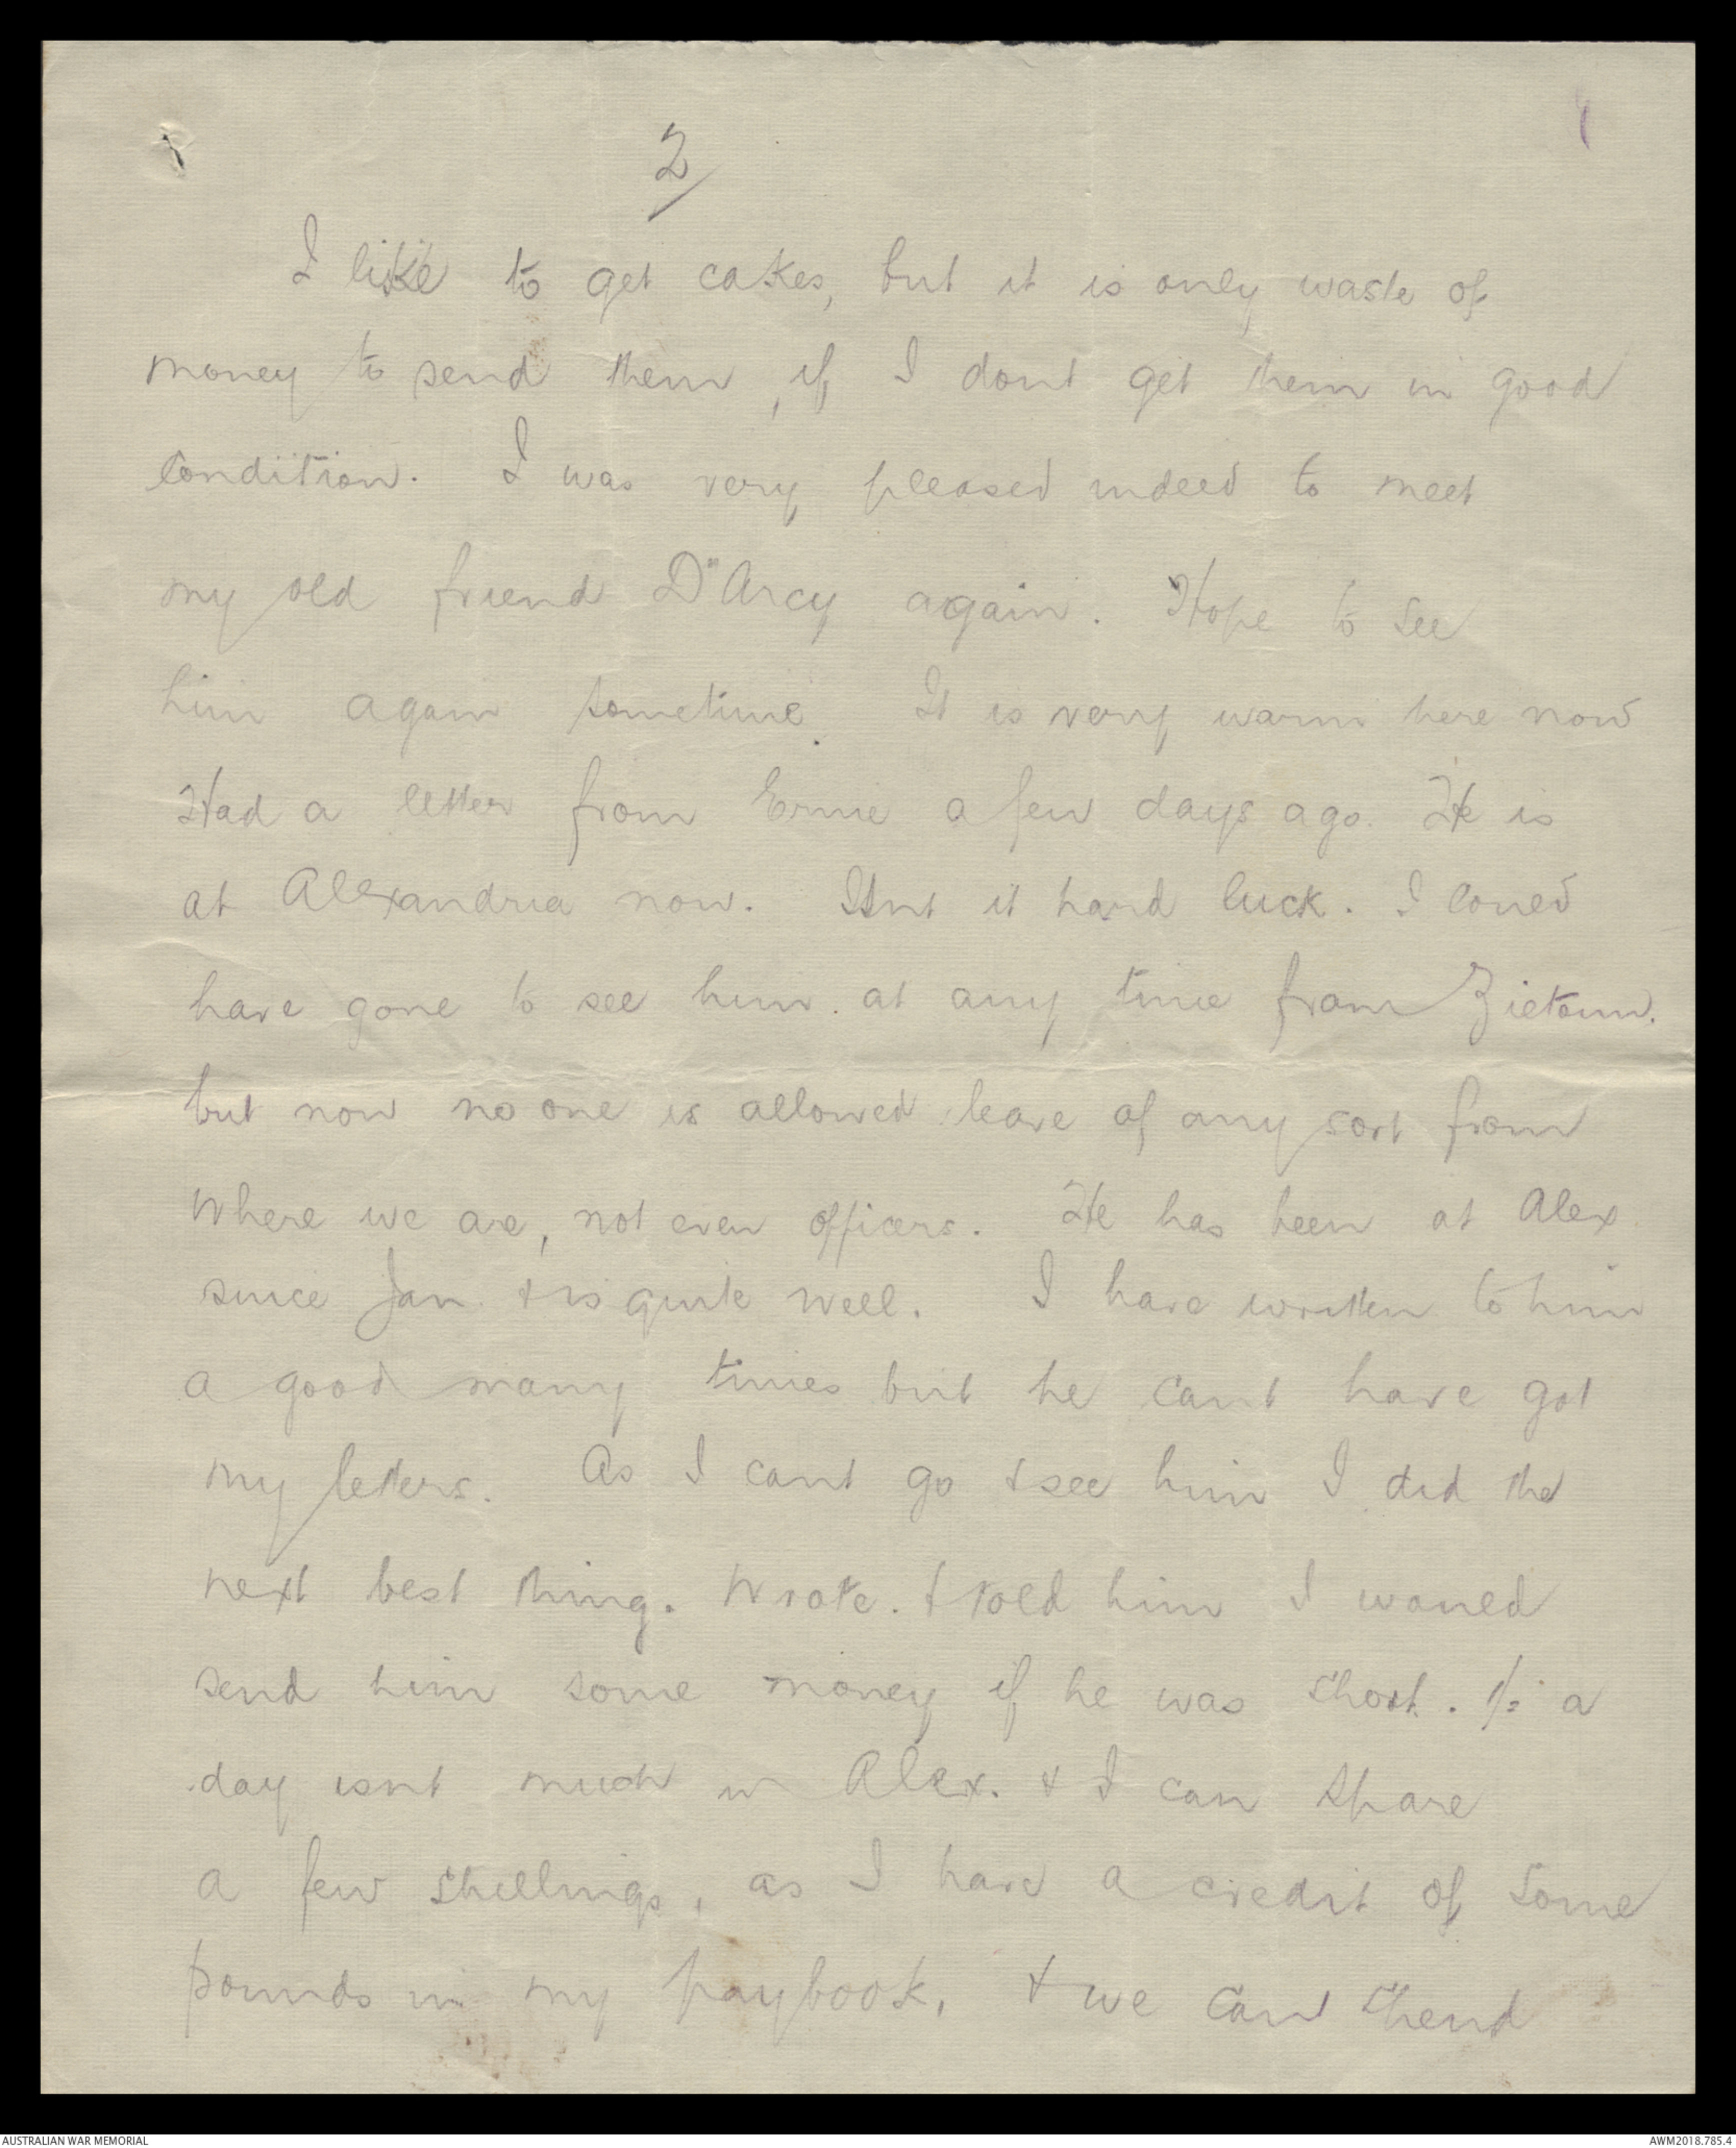 2/
I like to get cakes, but it is only waste of
money to send them, if I dont get them in good
condition. I was very pleased indeed to meet
my old friend D"Arcy again. Hope to see
him again sometime. It is very warm here now
Had a letter from Ernie a few days ago. He is
at Alexandria now. Isnt it hard luck. I could
have gone to see him at any time from Zietoun.
but now no one is allowed leave of any sort from
where we are, not even officers. He has been at Alex
since Jan. & is quite well. I have written to him
a good many times but he cant have got
my letters. As I cant go & see him I did the
next best thing. Wrote. & told him I would
send him some money if he was short. 1/= a
day isnt much in Alex. & I can spare
a few shillings, as I have a credit of some
pounds in my paybook, & we cant spend
AUSTRALIAN WAR MEMORIAL
AWM2018.785.4